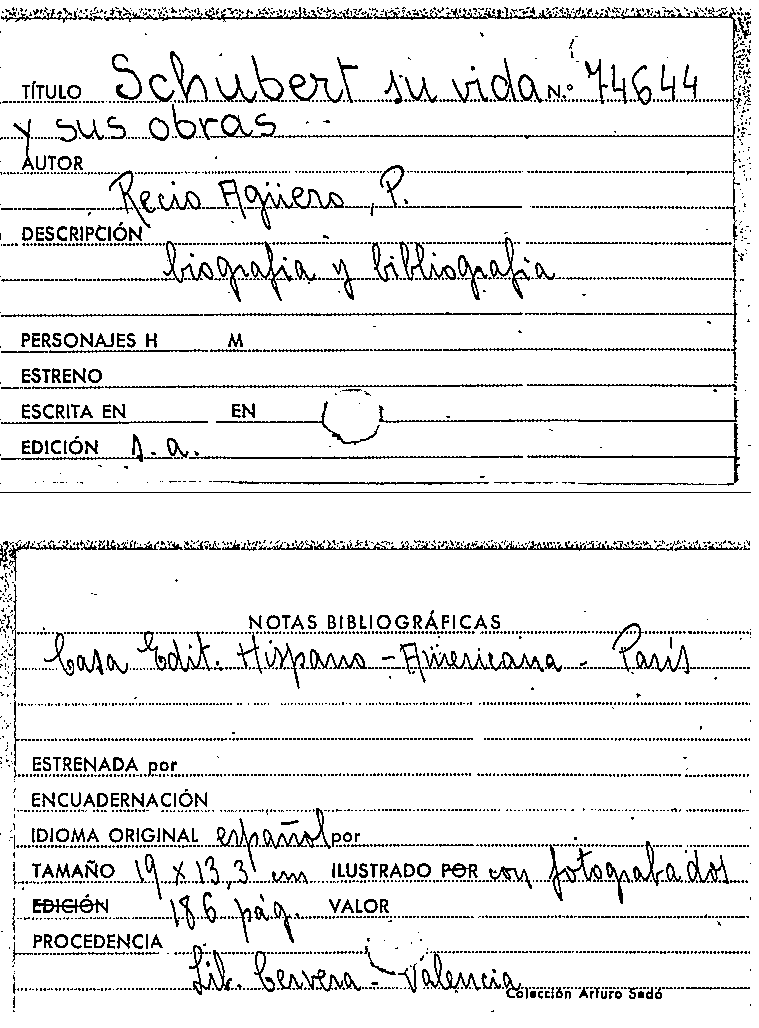 TÍTULO Schubert su vida N.º 74644
y sus obras
AUTOR
Recio Agüero, P.
DESCRIPCIÓN
biografia y bibliografia
PERSONAJES H M
ESTRENO
ESCRITA EN EN
EDICIÓN s.a.
NOTAS BIBLIOGRÁFICAS
Casa Edit. Hispano-Americana - París
ESTRENADA por
ENCUADERNACIÓN
IDIOMA ORIGINAL español por
TAMAÑO 19 x 13,3 cm ILUSTRADO POR con fotograbados
EDICIÓN 186 pág. VALOR
PROCEDENCIA
Lib. Cervera - Valencia
Colección Arturo Sedó